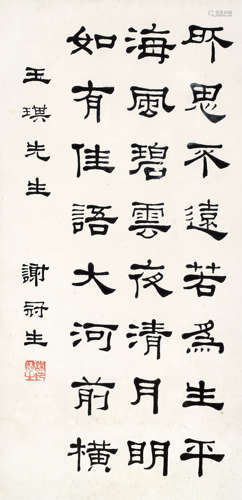 所思不遠若為生平
海風碧雲夜清月明
如有佳語大河前橫
王琪先生 謝冠生